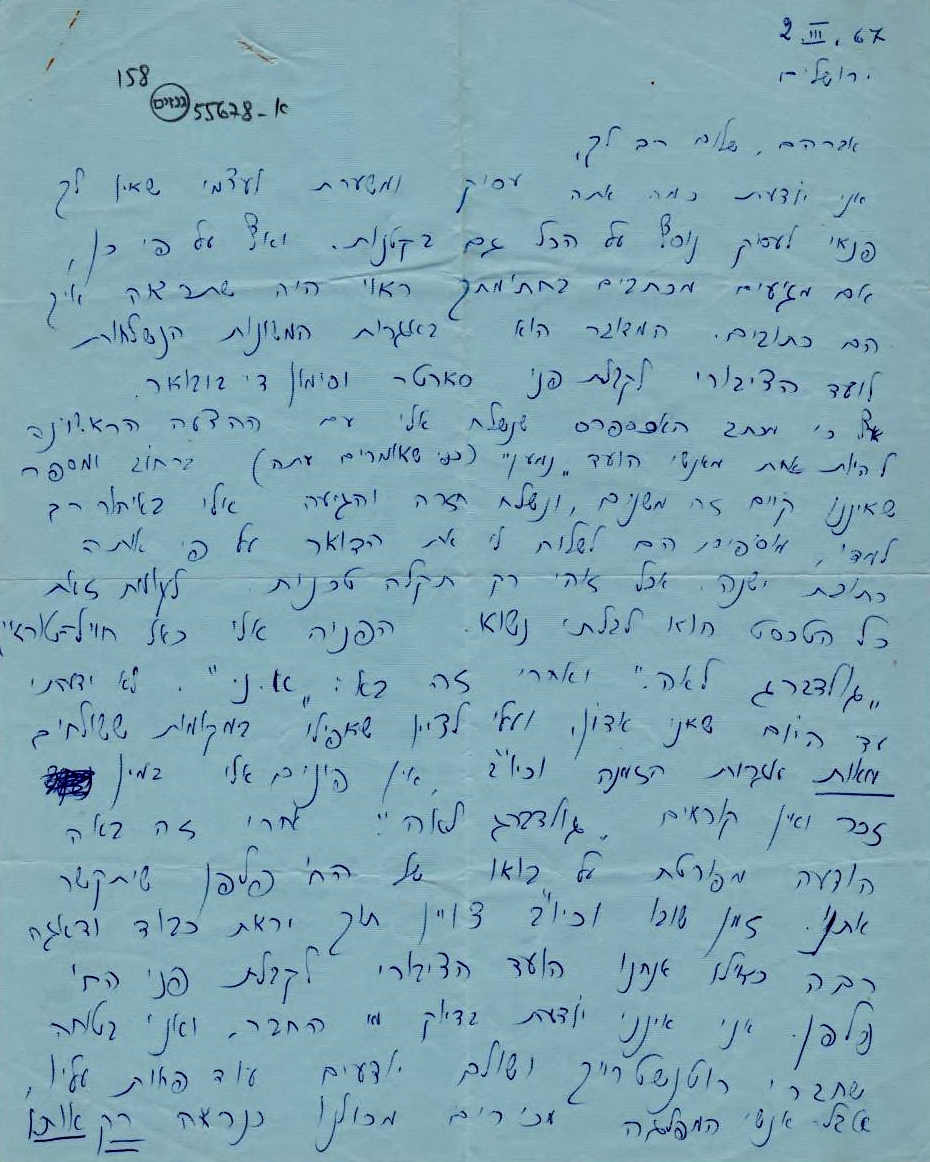 2 III. 67
ירושלים
158
גנזים
55678-א
אברהם, שלום רב לך,
אני יודעת כמה אתה עסוק ומשערת לעצמי שאין לך
פנאי לעסוק נוסף על הכל גם בקטנות. ואף על פי כן,
אם מגיעים מכתבים בחתימתך ראוי היה שתראה איך
הם כתובים. המדובר הוא באגרות המשונות הנשלחות
לועד הציבורי לקבלת פני סארטר וסימון די בובואר.
אף כי מכתב האכספרס שנשלח אלי עם ההצעה הראשונה
להיות אחת מאנשי הועד "נמען" (כפי שאומרים עתה) ברחוב ומספר
שאיננו קיים זה משנים, ונשלח חזרה והגיעה אלי באיחור רב
למדי, מוסיפים הם לשלוח לי את הדואר על פי אותה
כתובת ישנה. אבל זוהי רק תקלה טכנית. לעומת זאת
כל הטכסט הוא לבלתי נשוא. הפניה אלי כאל חייל-טוראי
"גולדברג לאה". ואחרי זה בא: "א.נ." לא ידעתי
עד היום שאני אדון, ועלי לציין שאפילו במקומות ששולחים
מאות אגרות הזמנה וכיו"ב, אין פונים אלי במין
זכר ואין קוראים "גולדברג לאה". אחרי זה באה
הודעה מפורטת על בואו של הח' פלפן שיתקשר
אתנו. זמן שובו וכיו"ב צויין תוך יראת כבוד ודאגה
רבה כאילו אנחנו הועד הציבורי לקבלת פני הח'
פלפן. אני אינני יודעת בדיוק מי החבר, ואני בטוחה
שחברי רוטנשטרייך ושולם יודעים עוד פחות עליו,
אבל אנשי המפלגה מכירים מכולנו כנראה רק אותו